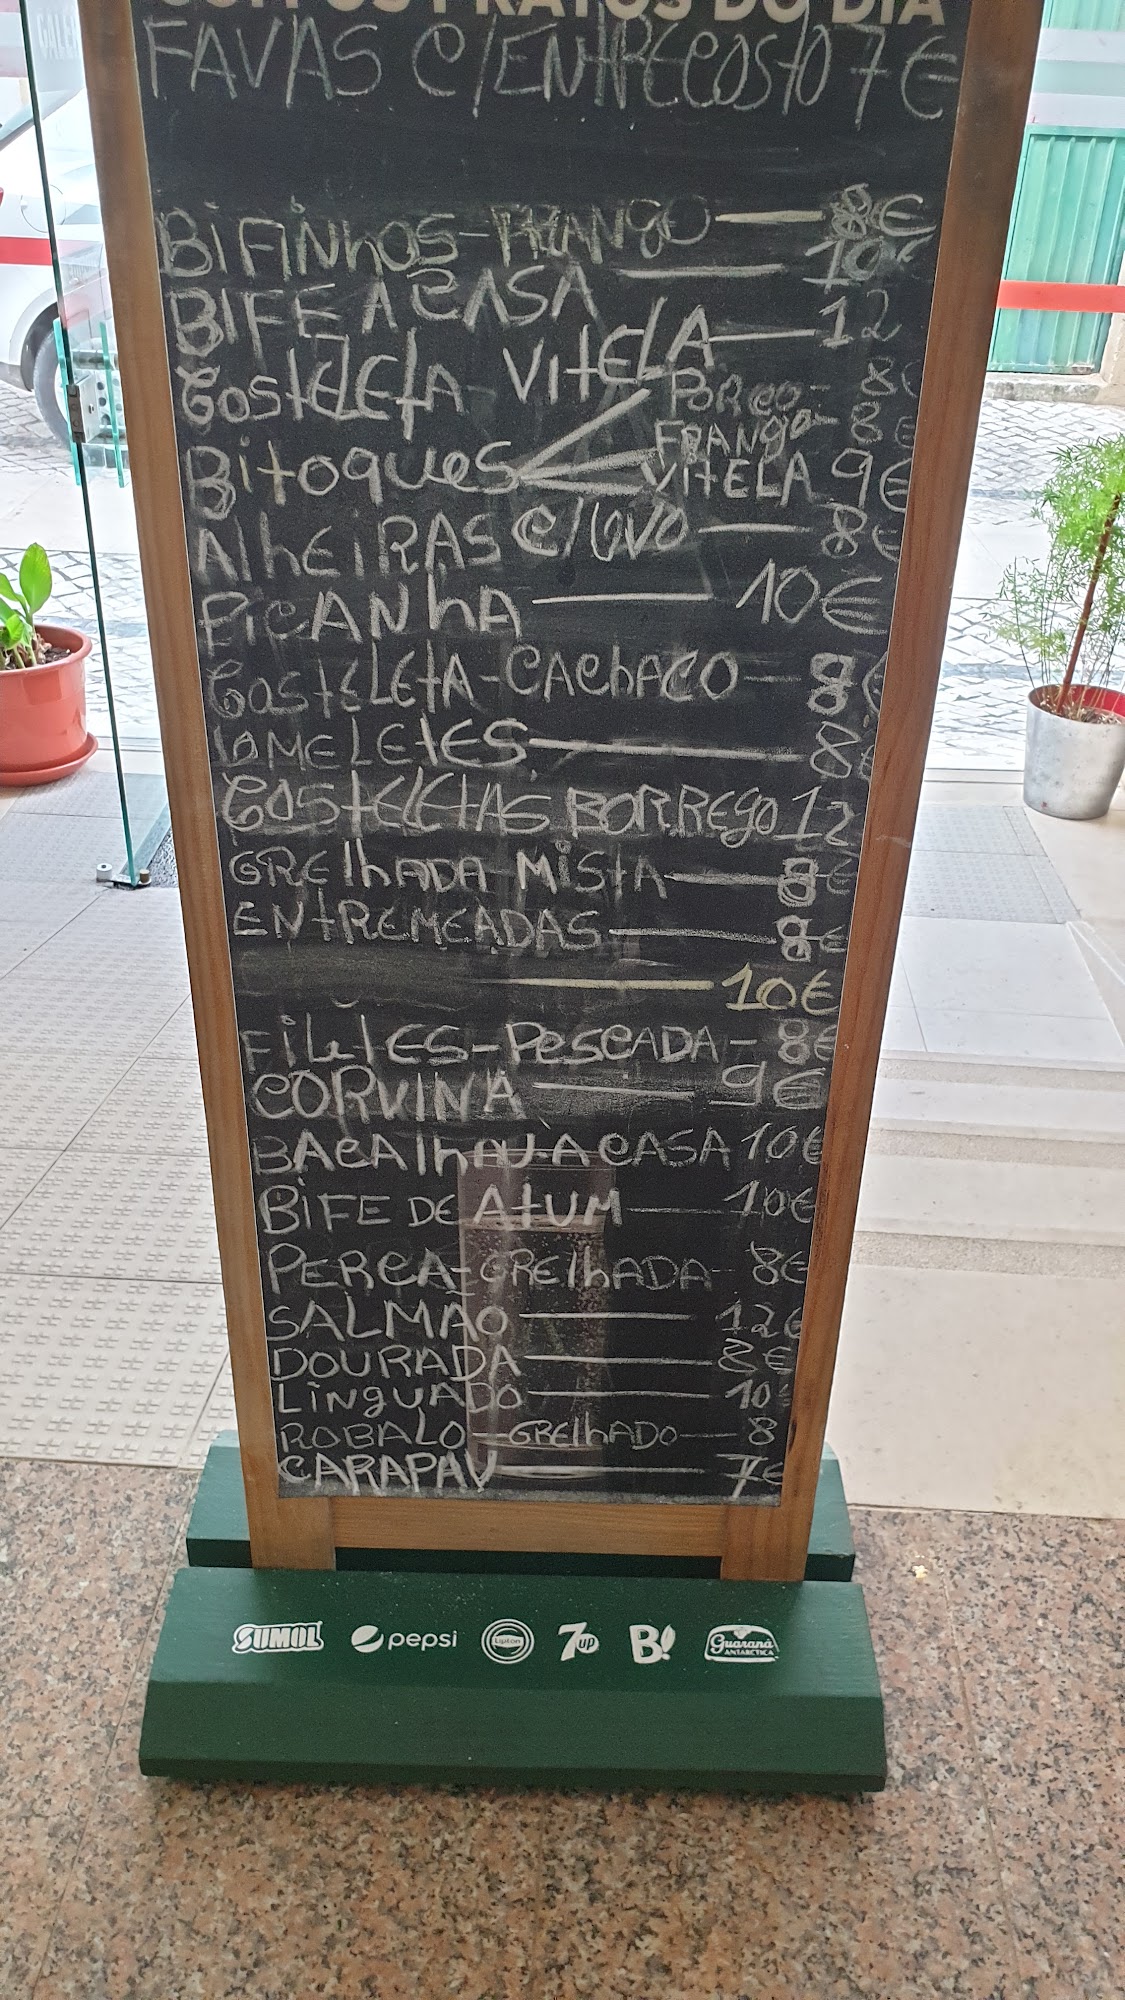 COM OS PRATOS DO DIA
FAVAS C/ENTRECOSTO 7€
BiFiNhOS-FRANgO — 8€
BIFE A CASA — 10€
COSTELETA VITELA — 12
Bitoques PORCO - 8€
FRANgO - 8€
VITELA 9€
AlhEiRAS C/OVO — 8€
PiCANhA — 10€
COSTELETA-CAChAÇO — 8€
OMELETES — 8€
COSTELETAS BORREgO 12
GRElhADA MiSTA — 8€
ENTREMEADAS — 8€
— 10€
FiLETES-PESCADA - 8€
CORVINA — 9€
BACAlhAU-A CASA 10€
BiFE DE ATUM — 10€
PERCA-GRElhADA - 8€
SALMÃO — 12€
DOURADA — 8€
LiNgUADO — 10
ROBALO-GRElhADO — 8
CARAPAU — 7€
SUMOL pepsi Lipton 7up B! Guaraná ANTARCTICA